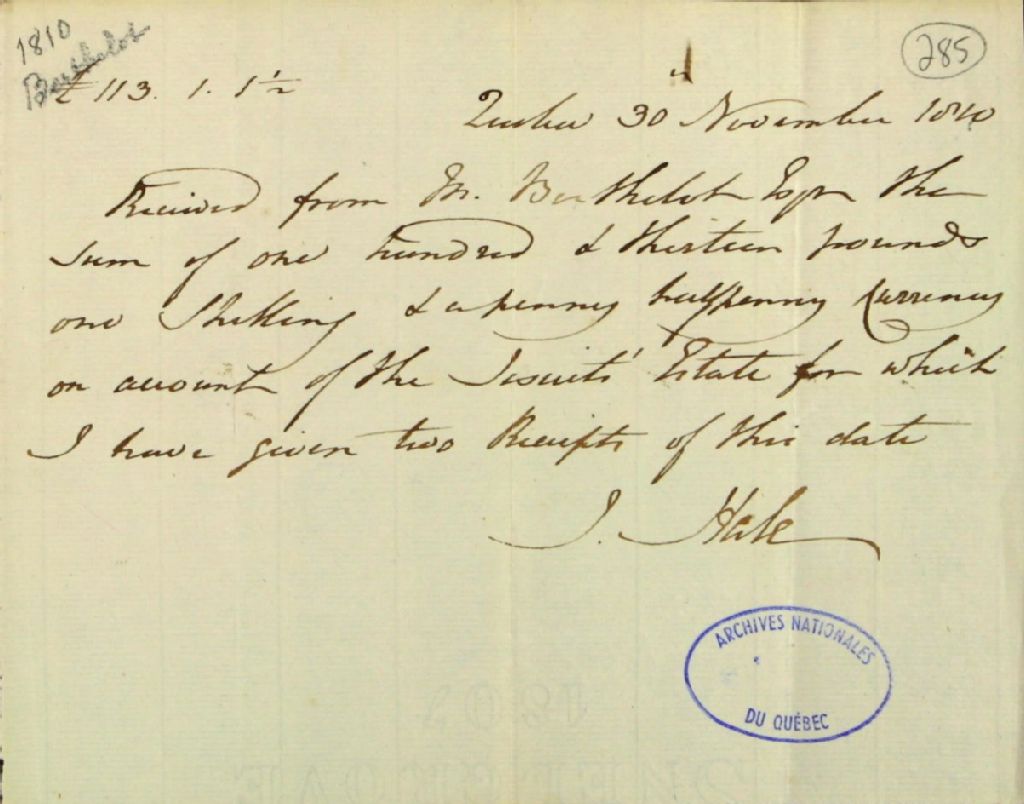 1810
Berthelot
285
£ 113. 1. 1½
Quebec 30 November 1810
Received from M. Berthelot Esqr the
sum of one hundred & thirteen pounds
one Shilling & a penny halfpenny Currency
on account of the Jesuits' Estate for which
I have given two Receipts of this date
J. Hale
ARCHIVES NATIONALES
DU QUÉBEC